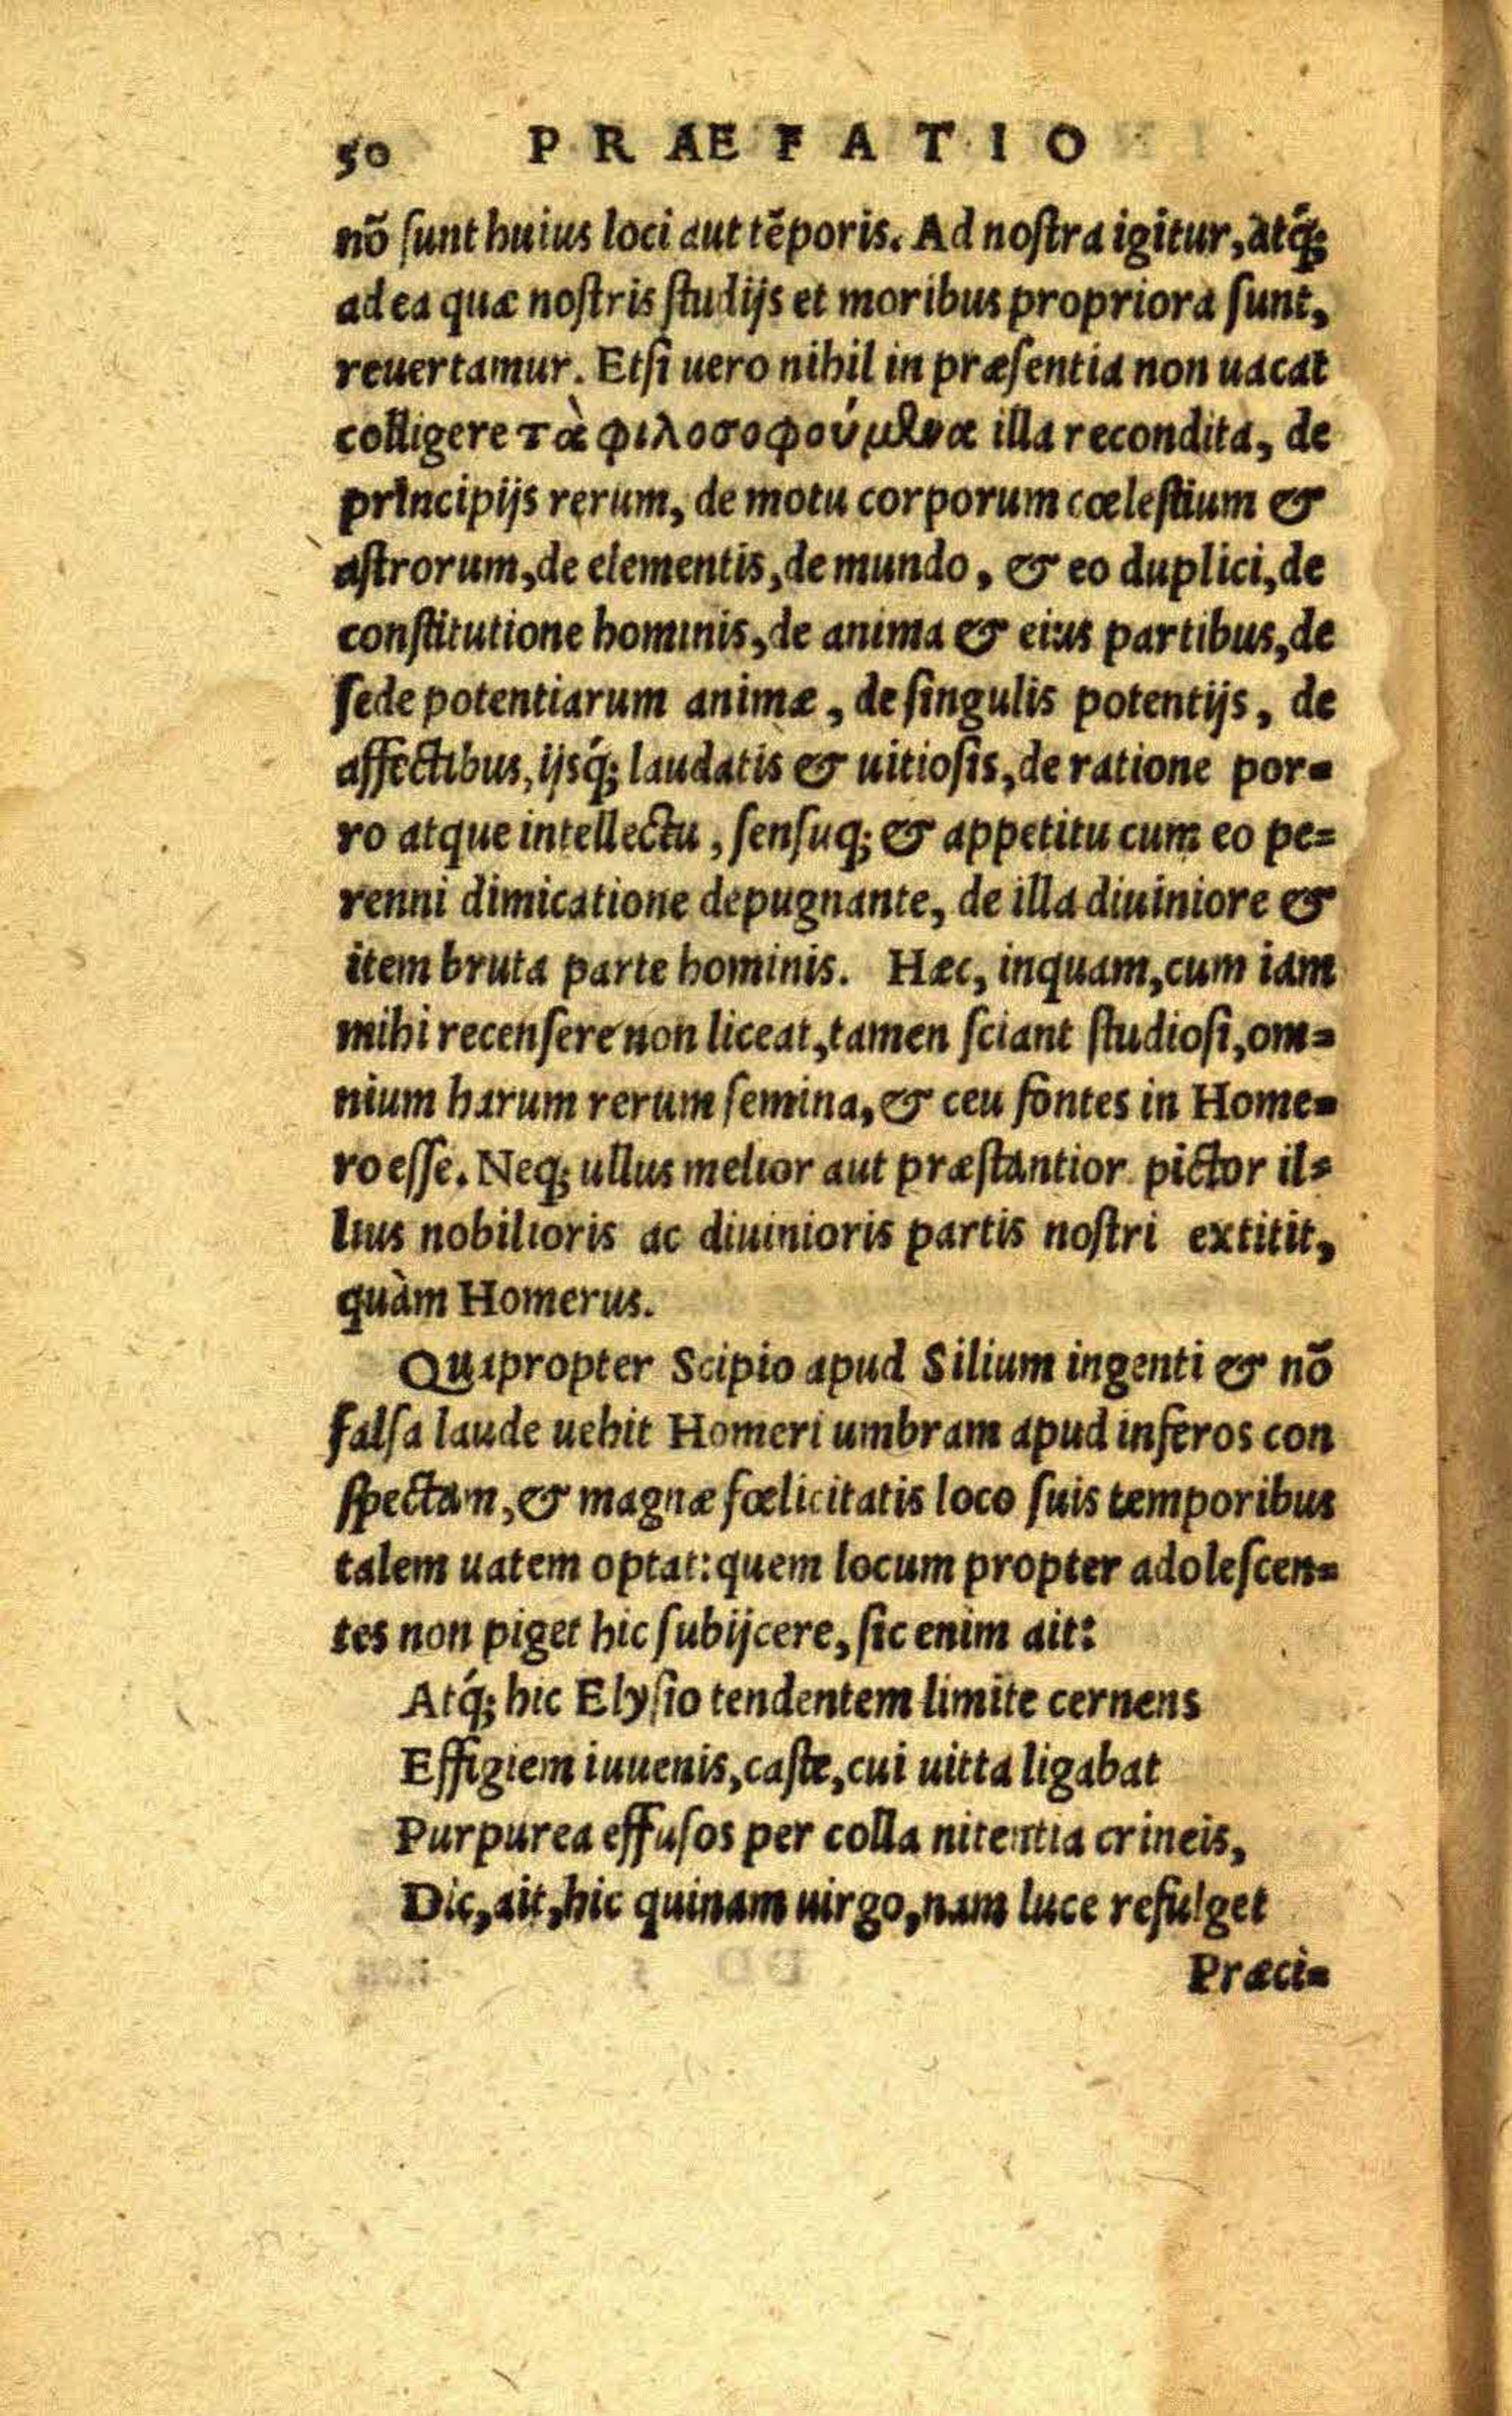 50 PRÆFATIO
nõ sunt huius loci aut tẽporis. Ad nostra igitur, atq́;
ad ea quæ nostris studijs et moribus propriora sunt,
reuertamur. Etsi uero nihil in præsentia non uacat
colligere τὰ φιλοσοφούμενα illa recondita, de
principijs rerum, de motu corporum cœlestium &
astrorum, de elementis, de mundo, & eo duplici, de
constitutione hominis, de anima & eius partibus, de
sede potentiarum animæ, de singulis potentijs, de
affectibus, ijsq́; laudatis & uitiosis, de ratione por-
ro atque intellectu, sensuq; & appetitu cum eo pe-
renni dimicatione depugnante, de illa diuiniore &
item bruta parte hominis. Hæc, inquam, cum iam
mihi recensere non liceat, tamen sciant studiosi, om-
nium harum rerum semina, & ceu fontes in Home-
ro esse. Neq; ullus melior aut præstantior pictor il-
lius nobilioris ac diuinioris partis nostri extitit,
quàm Homerus.
Quapropter Scipio apud Silium ingenti & nõ
falsa laude uehit Homeri umbram apud inferos con
spectam, & magnæ fœlicitatis loco suis temporibus
talem uatem optat: quem locum propter adolescen-
tes non piget hic subijcere, sic enim ait:
Atq́; hic Elysio tendentem limite cernens
Effigiem iuuenis, caste, cui uitta ligabat
Purpurea effusos per colla nitentia crineis,
Dic, ait, hic quinam uirgo, nam luce refulget
Præci-